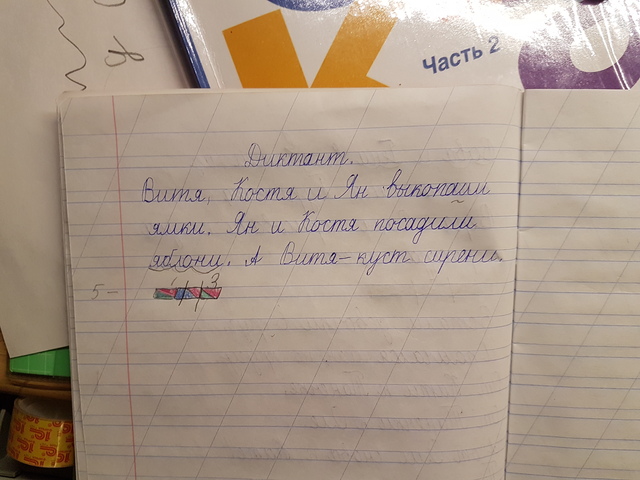 Часть 2
К
Диктант.
Витя, Костя и Ян выкопали
ямки. Ян и Костя посадили
яблони. А Витя – куст сирени.
5 – 3